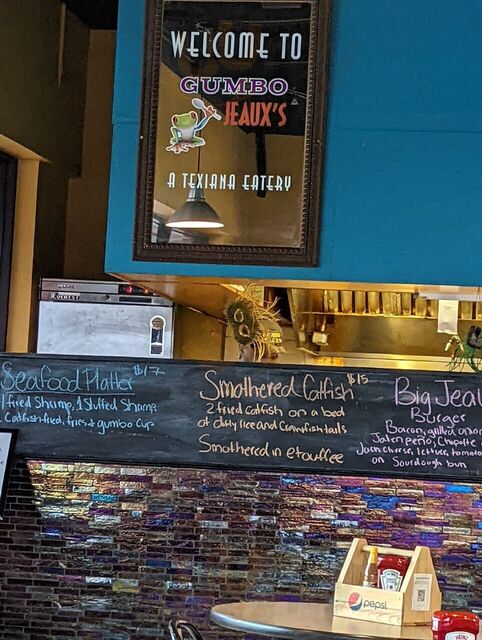 WELCOME TO
GUMBO
JEAUX'S
A TEXIANA EATERY
EVEREST
Seafood Platter $17
1 fried Shrimp, 1 Stuffed Shrimp
Catfish fried, fries & gumbo cup
Smothered Catfish $15
2 fried catfish on a bed
of dirty rice and Crawfish tails
Smothered in etouffee
Big Jeau
Burger
Bacon, grilled onion
Jalen peno, Chipotle
Jack cheese, lettuce, tomato
on Sourdough bun
pepsi
HEINZ